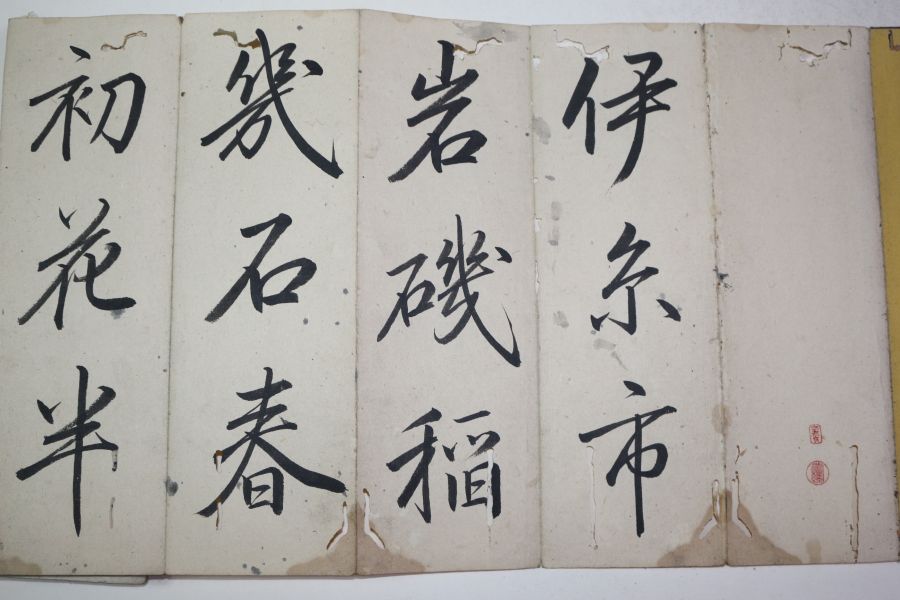 伊糸市
岩磯稲
幾石春
初花半